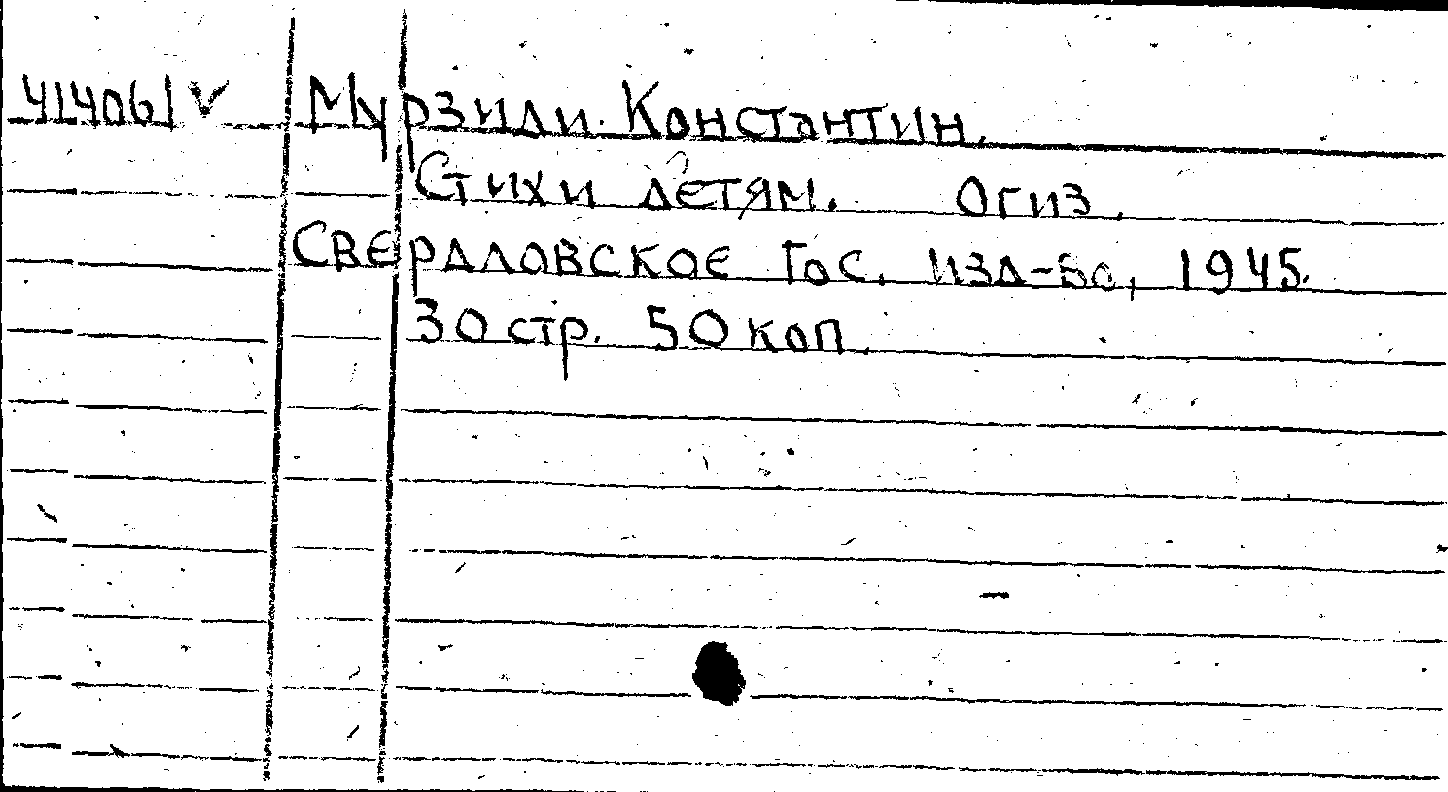 414061 V Мурзиди. Константин.
Стихи детям. Огиз.
Свердловское Гос. изд-во, 1945.
30 стр. 50 коп.